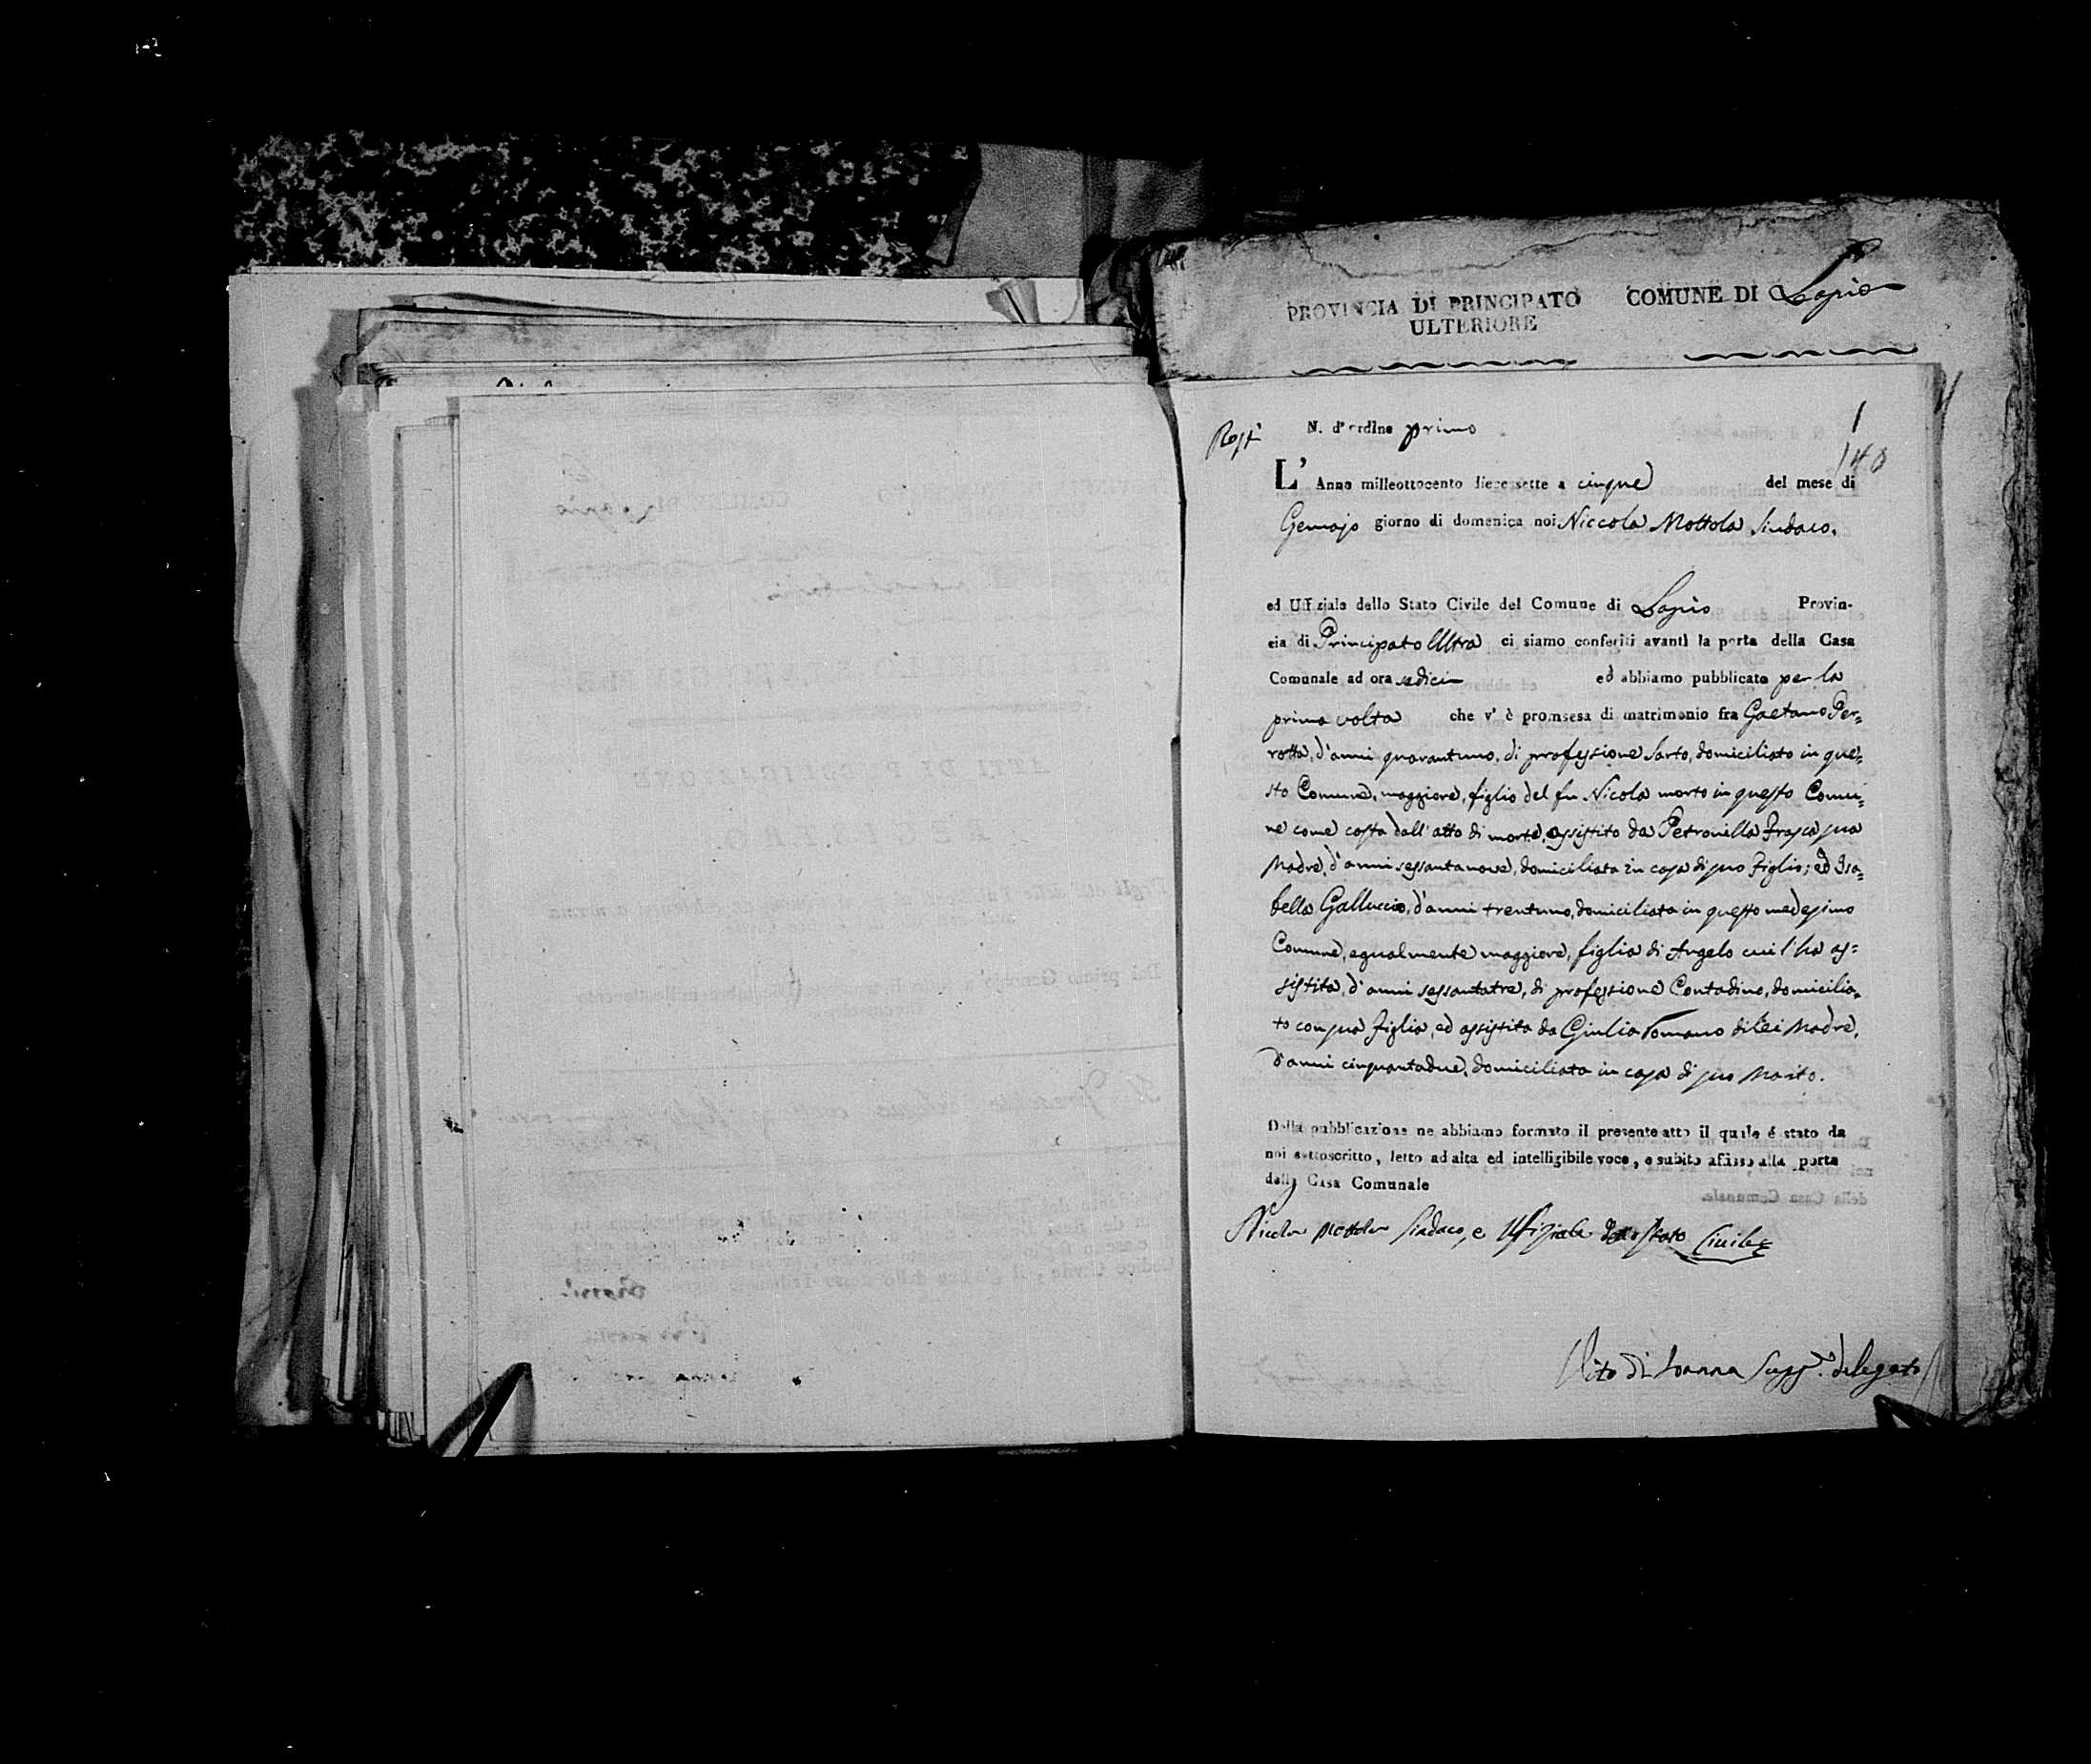 PROVINCIA DI PRINCIPATO
ULTERIORE
COMUNE DI Lapio
N. d'ordine primo
1
140
L'Anno milleottocento diecesette a cinque del mese di
Gennajo giorno di domenica noi Niccola Mottola Sindaco.
ed Uffiziale dello Stato Civile del Comune di Lapio Provin-
cia di Principato Ultra ci siamo conferiti avanti la porta della Casa
Comunale ad ora sedici ed abbiamo pubblicato per la
prima volta che v' è promsesa di matrimonio fra Gaetano Per=
rotta, d'anni quarantuno, di professione Sarto, domiciliato in que=
sto Comune, maggiore, figlio del fu Nicola morto in questo Comu=
ne come costa dall'atto di morte, assistito da Petronilla Frasca sua
Madre, d'anni sessantanove, domiciliata in casa di suo Figlio; ed Isa=
bella Galluccio, d'anni trentuno, domiciliata in questo medesimo
Comune, egualmente maggiore, figlia di Angelo cui l'ha as=
sistita, d'anni sessantatre, di professione Contadino, domicilia=
to con sua Figlia, ed assistita da Giulia Romano di lei Madre,
d'anni cinquantadue, domiciliata in casa di suo Marito.
Della pubblicazione ne abbiamo formato il presente atto il quale é stato da
noi sottoscritto, letto ad alta ed intelligibile voce, e subito afisso alla porta
della Casa Comunale
Nicola Mottola Sindaco, e Uffiziale dello Stato Civile
Vito di Ioanna Supp.te delegato